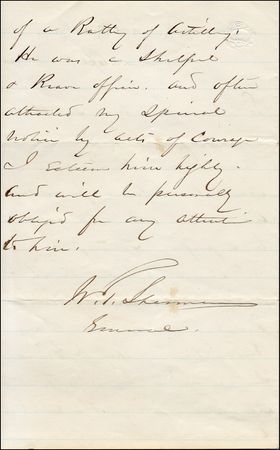 of a Battery of Artillery.
He was a Skilful
& Brave officer. and often
attracted my special
notice by acts of Courage
I esteem him highly.
and will be personally
obliged for any attention
to him.
W. T. Sherman
General.